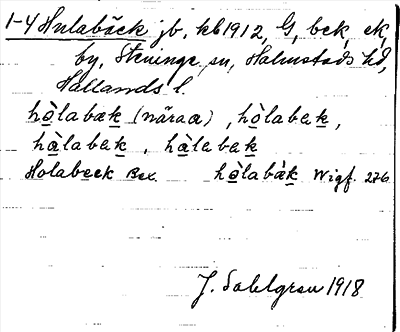 1-4 Hulabäck jb, kb 1912, G, bek, ek,
by, Steninge sn, Halmstads hd,
Hallands l.
hòlabæk (näraœ), hòlabek,
hàlabek, hàlebek
Holabeck Bex. hòlabàk Wigf. 276
J. Sahlgren 1918